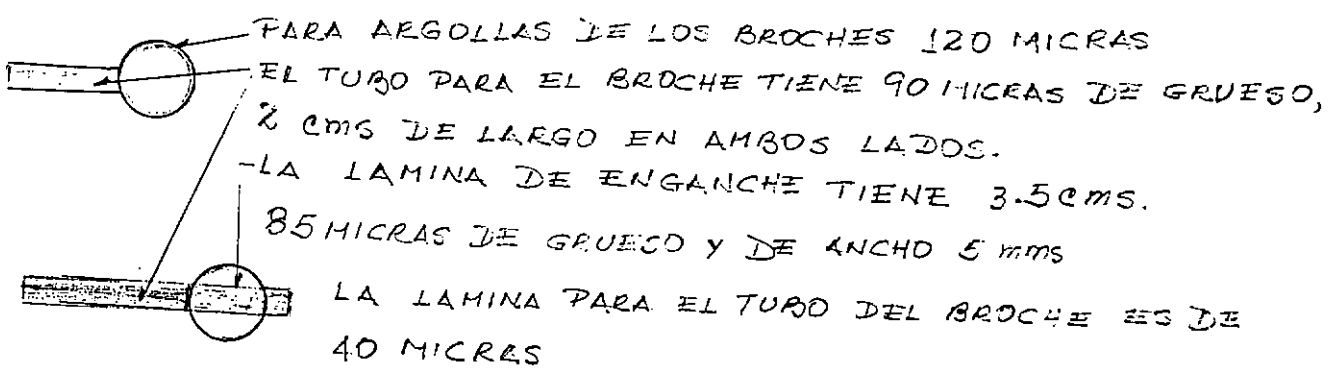 PARA ARGOLLAS DE LOS BROCHES 120 MICRAS
EL TUBO PARA EL BROCHE TIENE 90 MICRAS DE GRUESO,
2 cms DE LARGO EN AMBOS LADOS.
-LA LAMINA DE ENGANCHE TIENE 3.5 cms.
85 MICRAS DE GRUESO Y DE ANCHO 5 mms
LA LAMINA PARA EL TUBO DEL BROCHE ES DE
40 MICRAS